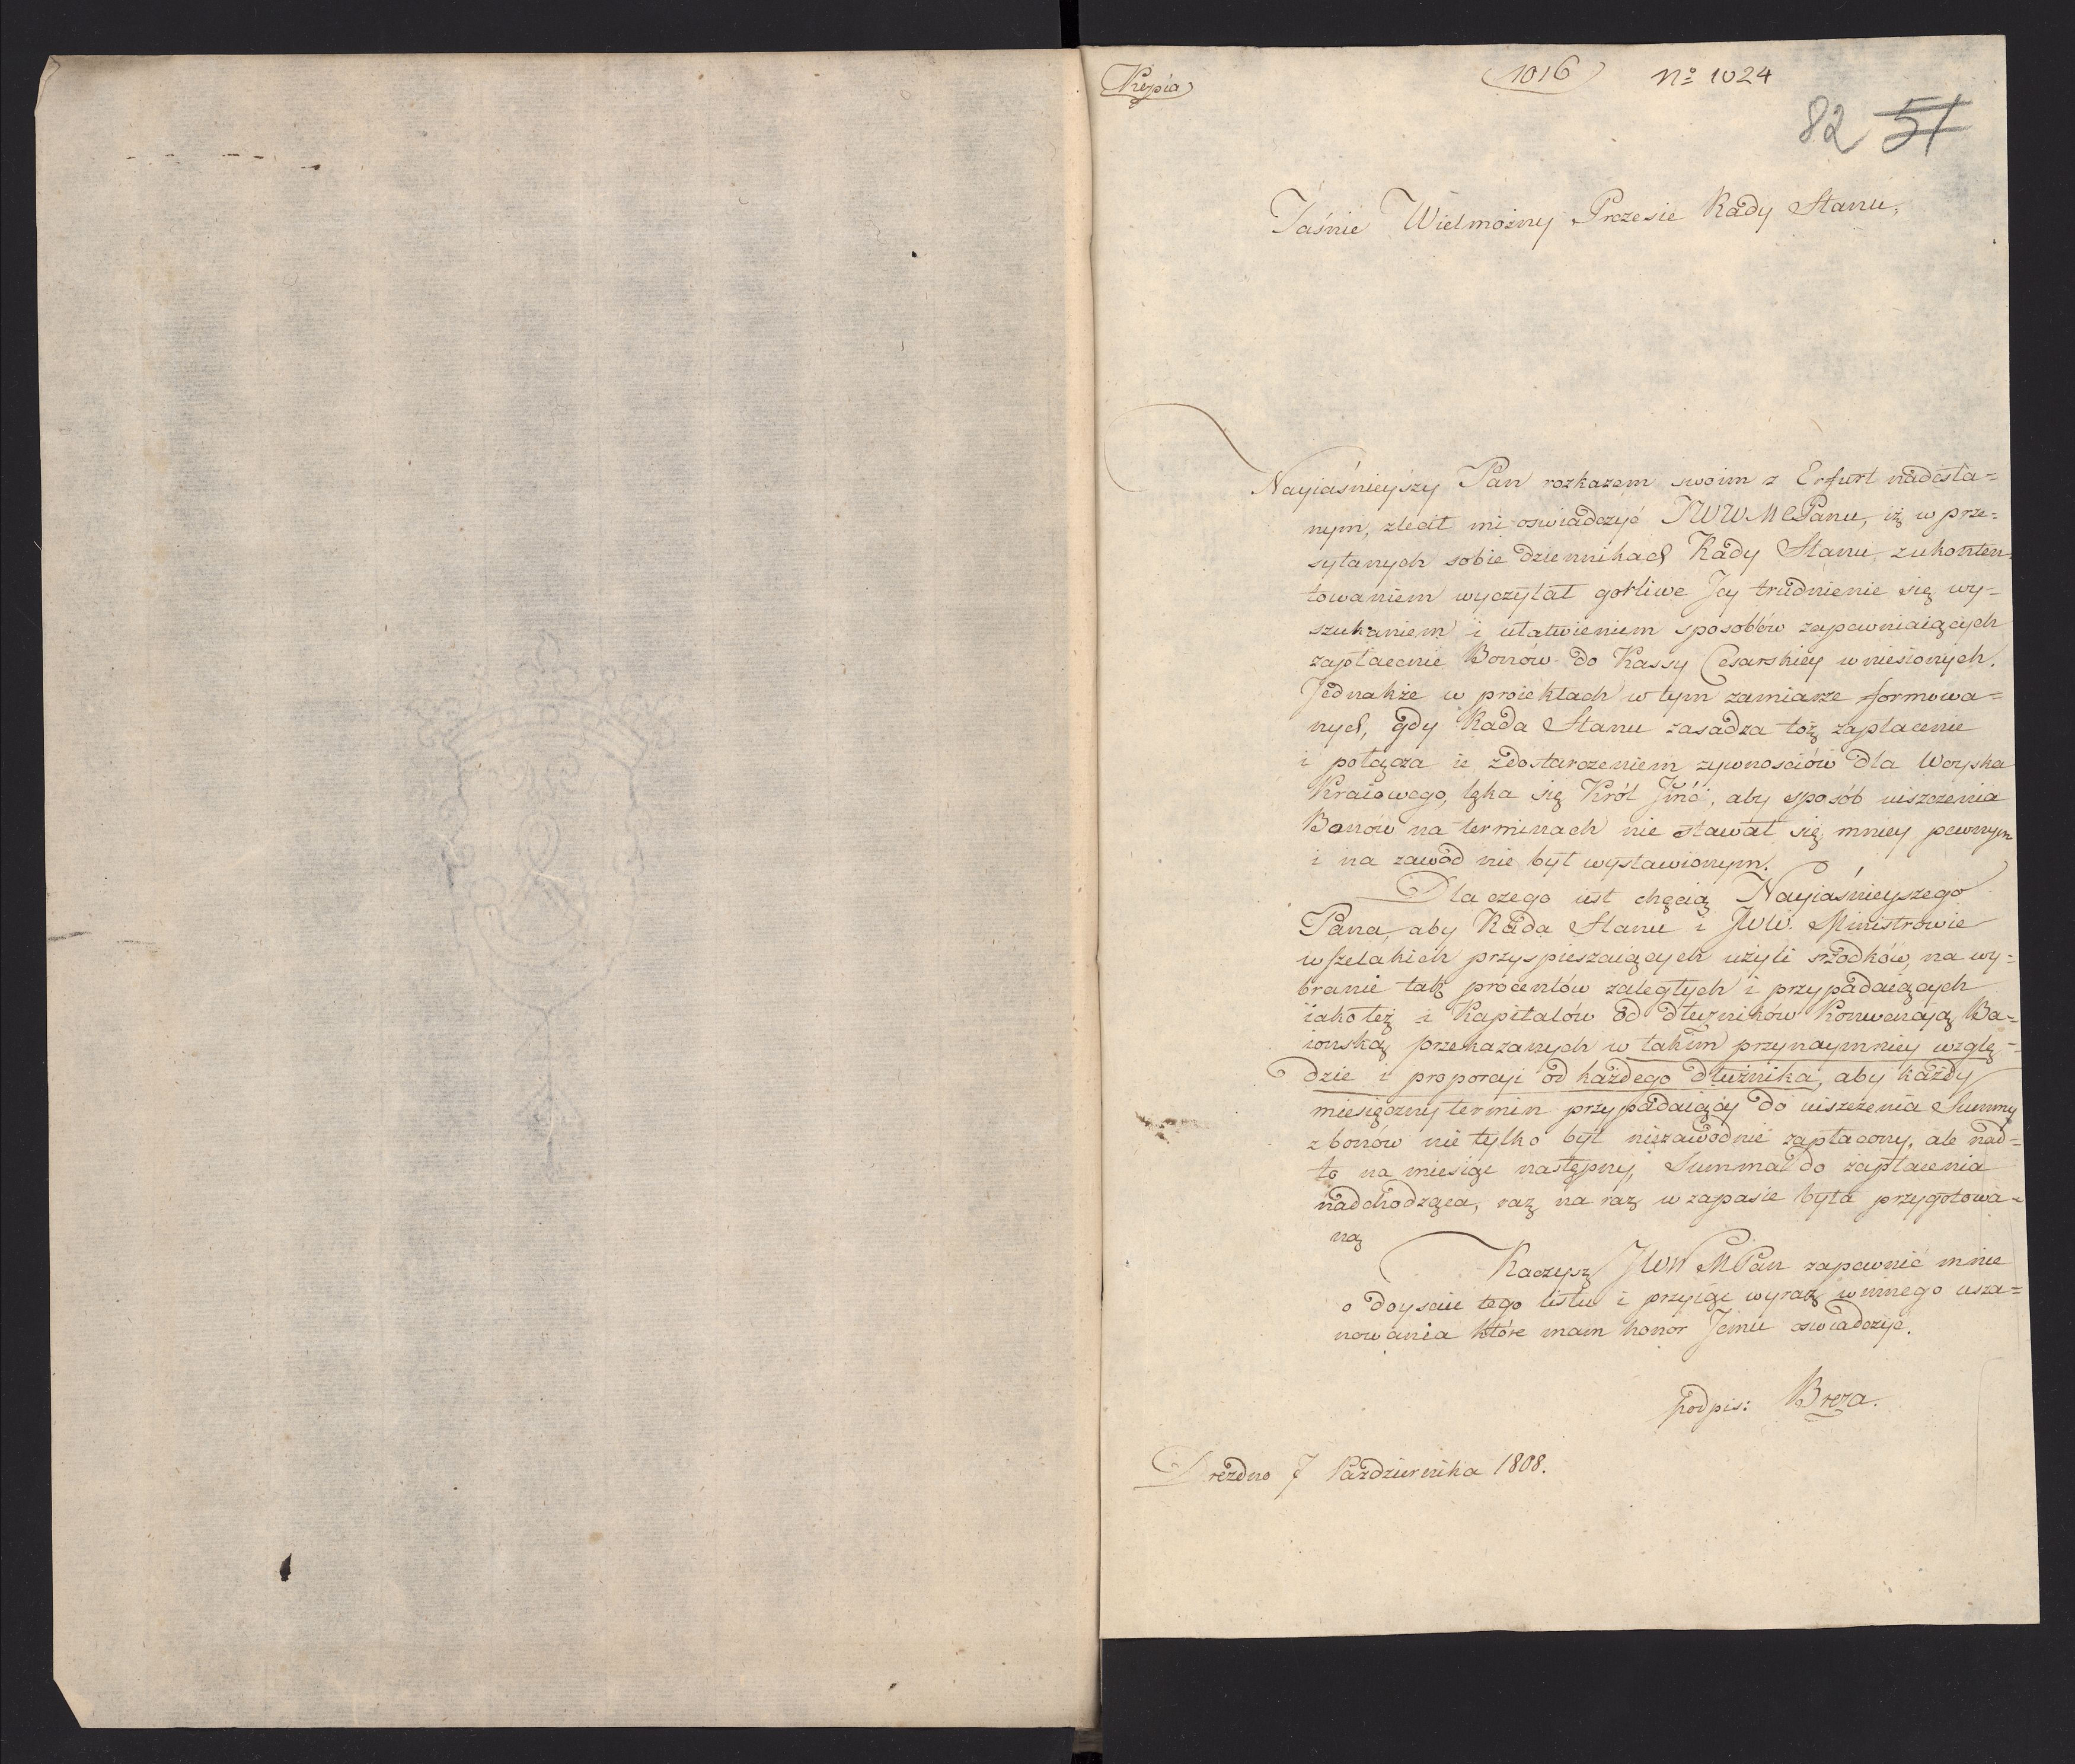 Kopia
1016 No 1024
82 51
Jaśnie Wielmożny Prezesie Rady Stanu,
Nayiaśnieyszy Pan rozkazem swoim z Erfurt nadesła=
nym, zlecił mi oswiadczyć JWWMPanu, iż w prze=
syłanych sobie dziennikach Rady Stanu, z ukonten
towaniem wyczytał gorliwe Jey trudnienie się wy=
szukaniem i ułatwieniem sposobów zapewniaiących
zapłacenie Bonów do Kassy Cesarskiey wniesionych.
Jednakże w proiektach w tym zamiarze formowa=
nych, gdy Rada Stanu zasadza toż zaplacenie
i połącza ie z dostarczeniem zywnosciów dla Woyska
Kraiowego, lęka się Król Jmć, aby sposób uiszczenia
Bonów na terminach nie stawał się mniey pewnym
i na zawód nie był wystawionym.
Dla czego iest chęcią Nayiaśnieyszego
Pana, aby Rada Stanu i JWW. Ministrowie
wszelakich przyspieszaiących użyli srzodków, na wy=
branie tak procentów zaległych i przypadaiących
iako też i Kapitałów od dłużników Konwencyą Ba=
ionską przekazanych w takim przynaymniey wzglę=
dzie i proporcyi od każdego dłużnika, aby każdy
miesięczny termin przypadaiący do uiszczenia Summy
z bonów nie tylko był niezawodnie zapłacony, ale nad=
to na miesiąc następny, Summa do zapłacenia
nadchodząca, raz na raz w zapasie była przygotowa=
ną
Raczysz JWW MPan zapewnić mnie
o doyściu tego listu i przyiąć wyraz winnego usza=
nowania które mam honor Jemu oswiadczyć.
podpis: Breza.
Drezdno 7 Pazdziernika 1808.